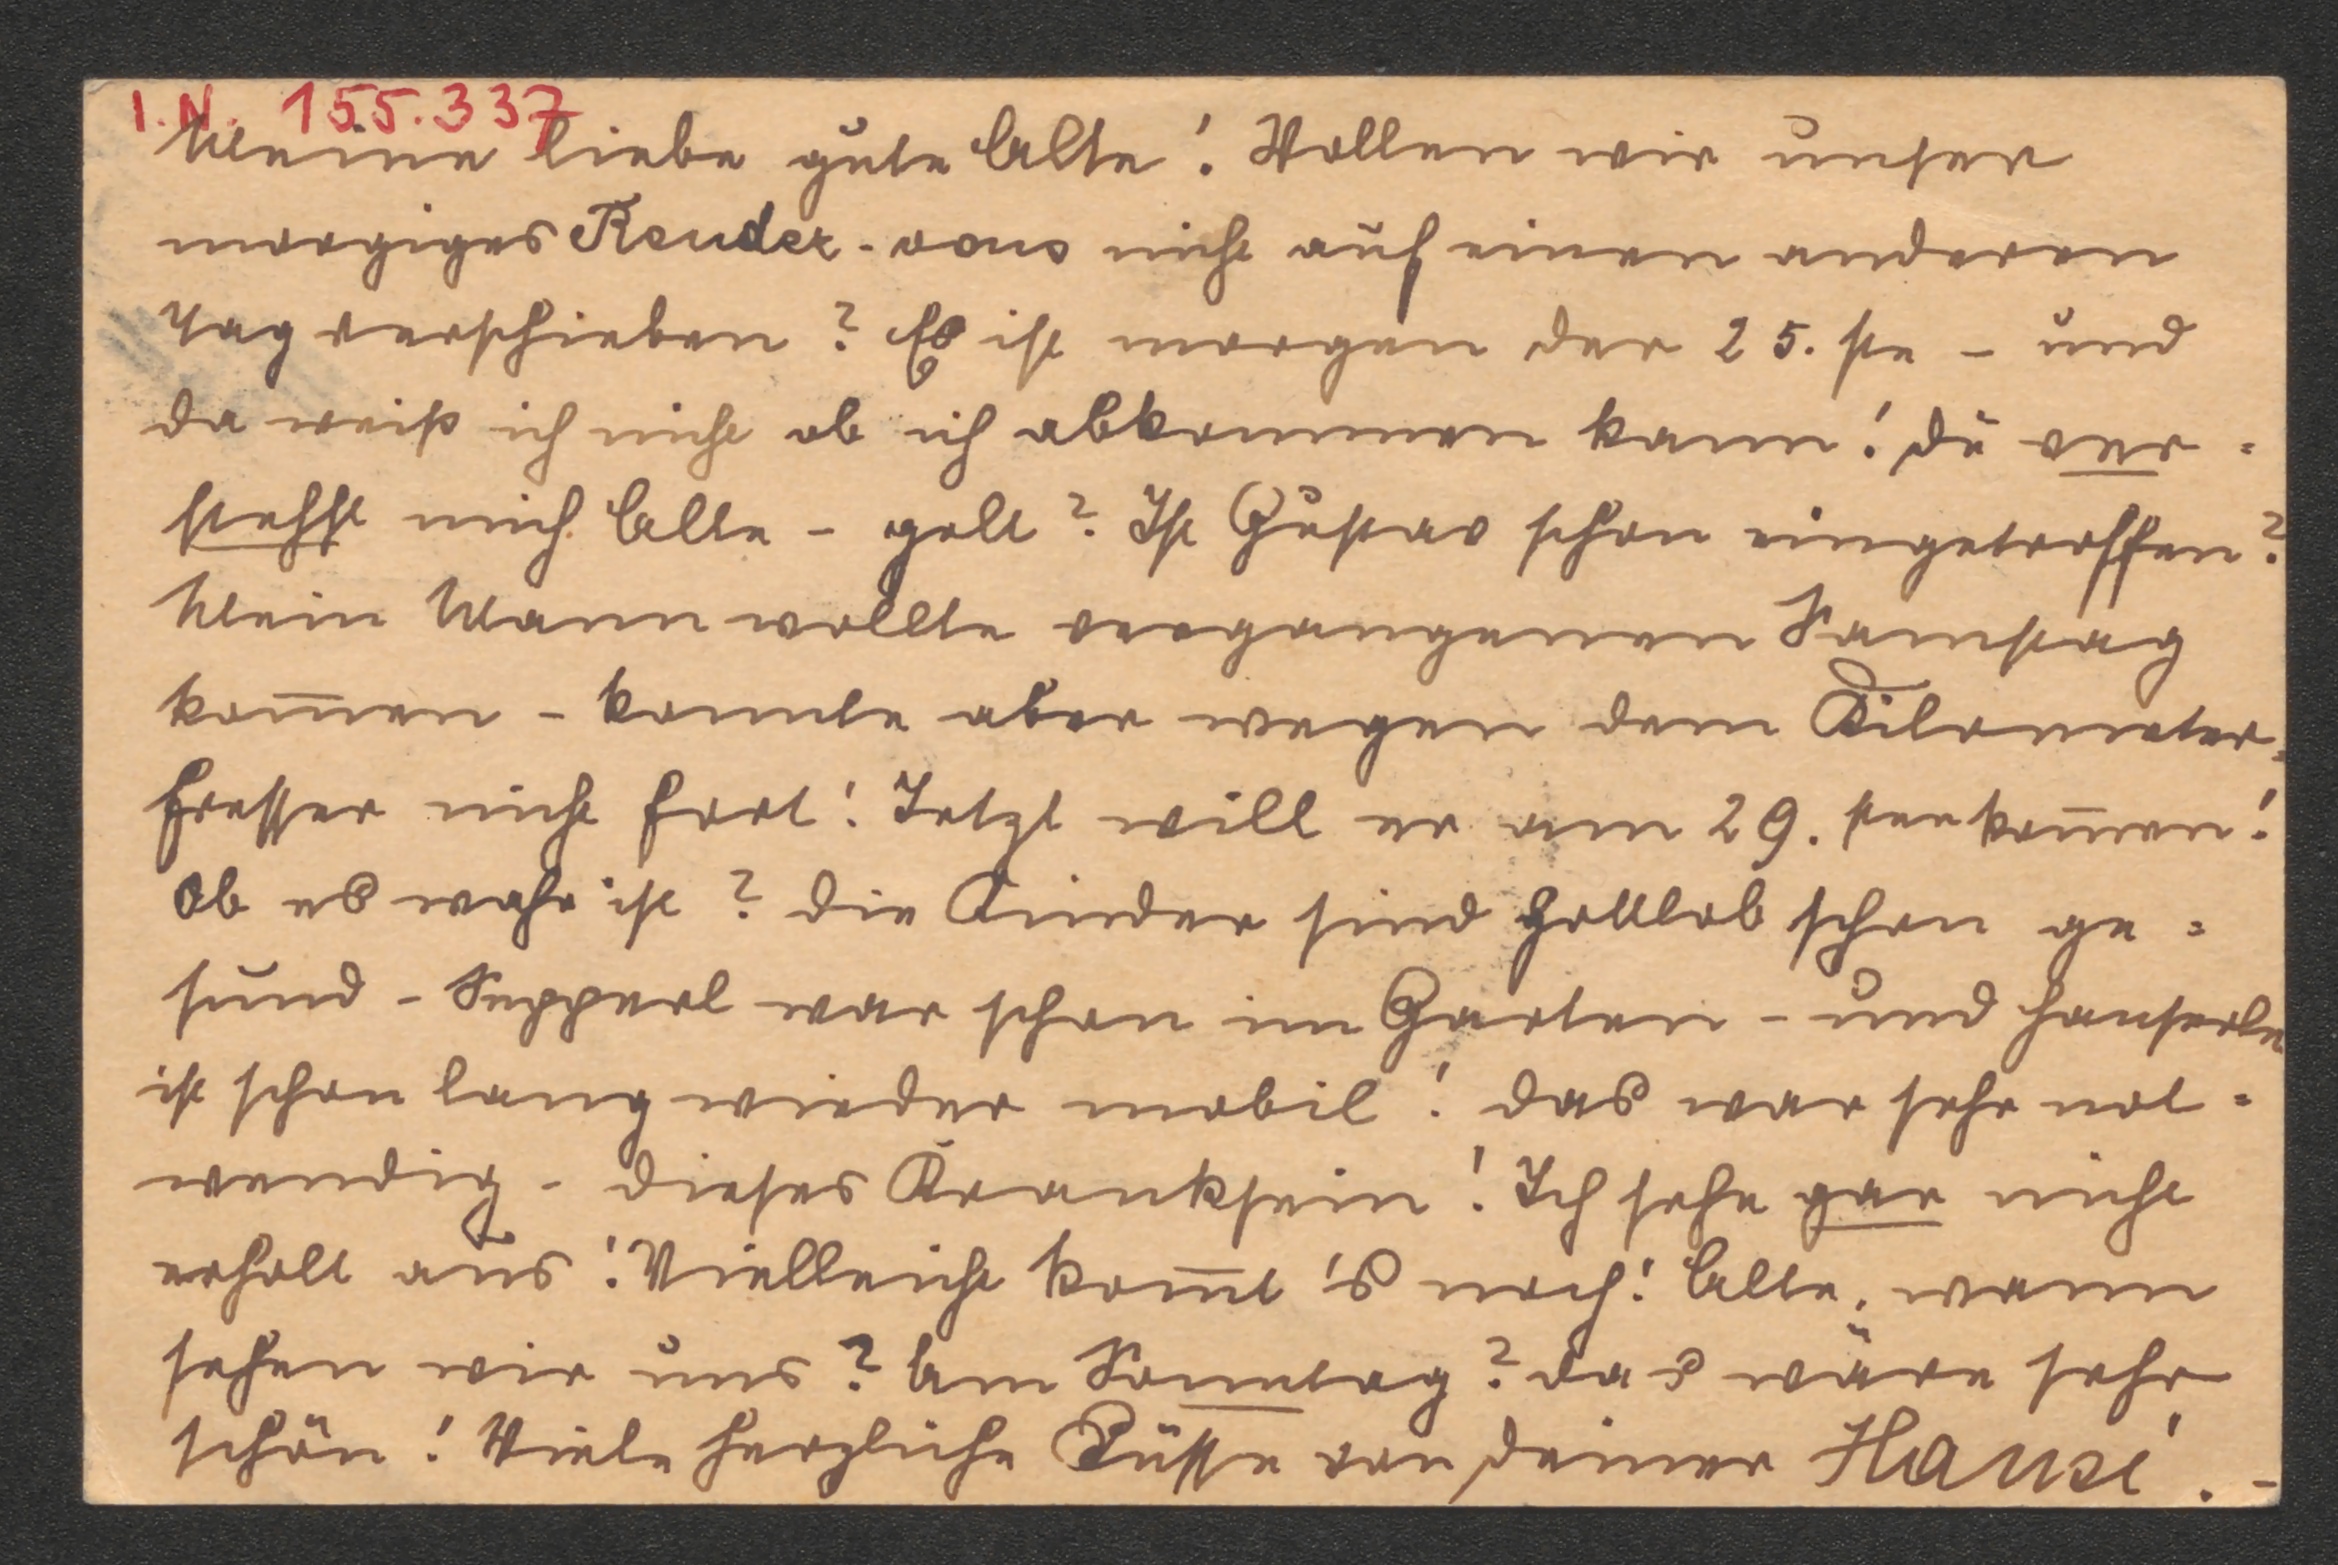 I.N. 155.337
Meine liebe gute Alte! Wollen wir unser
morgiges Rendez-vous nicht auf einen anderen
Tag verschieben? Es ist morgen der 25. ste – und
da weiß ich nicht ob ich abkommen kann! Du ver=
stehst mich Alte – gelt? Ist Gustav schon eingetroffen?
Mein Mann wollte vergangenen Samstag
kom̅en – konnte aber wegen dem Kilometer=
fresser nicht fort! Jetzt will er am 29. sten kom̅en!
Ob es wahr ist? Die Kinder sind Gottlob schon ge=
sund – Sepperl war schon im Garten – und Hanserle
ist schon lang wieder mobil! Das war sehr not=
wendig – dieses Kranksein! Ich sehe gar nicht
erholt aus! Vielleicht kom̅t 's noch! Alte, wann
sehen wir uns? Am Sonntag? Das wäre sehr
schön! Viele herzliche Küsse von Deiner Hansi. –